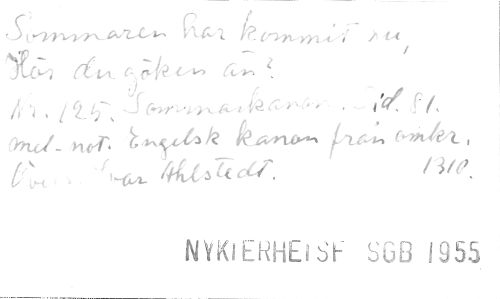 Sommaren har kommit nu,
Hör du göken än?
Nr. 125. Sommarkanon. Sid. 81.
mel-not. Engelsk kanon från omkr.
Ivar Ahlstedt. 1310.
NYKTERHETSF SGB 1955